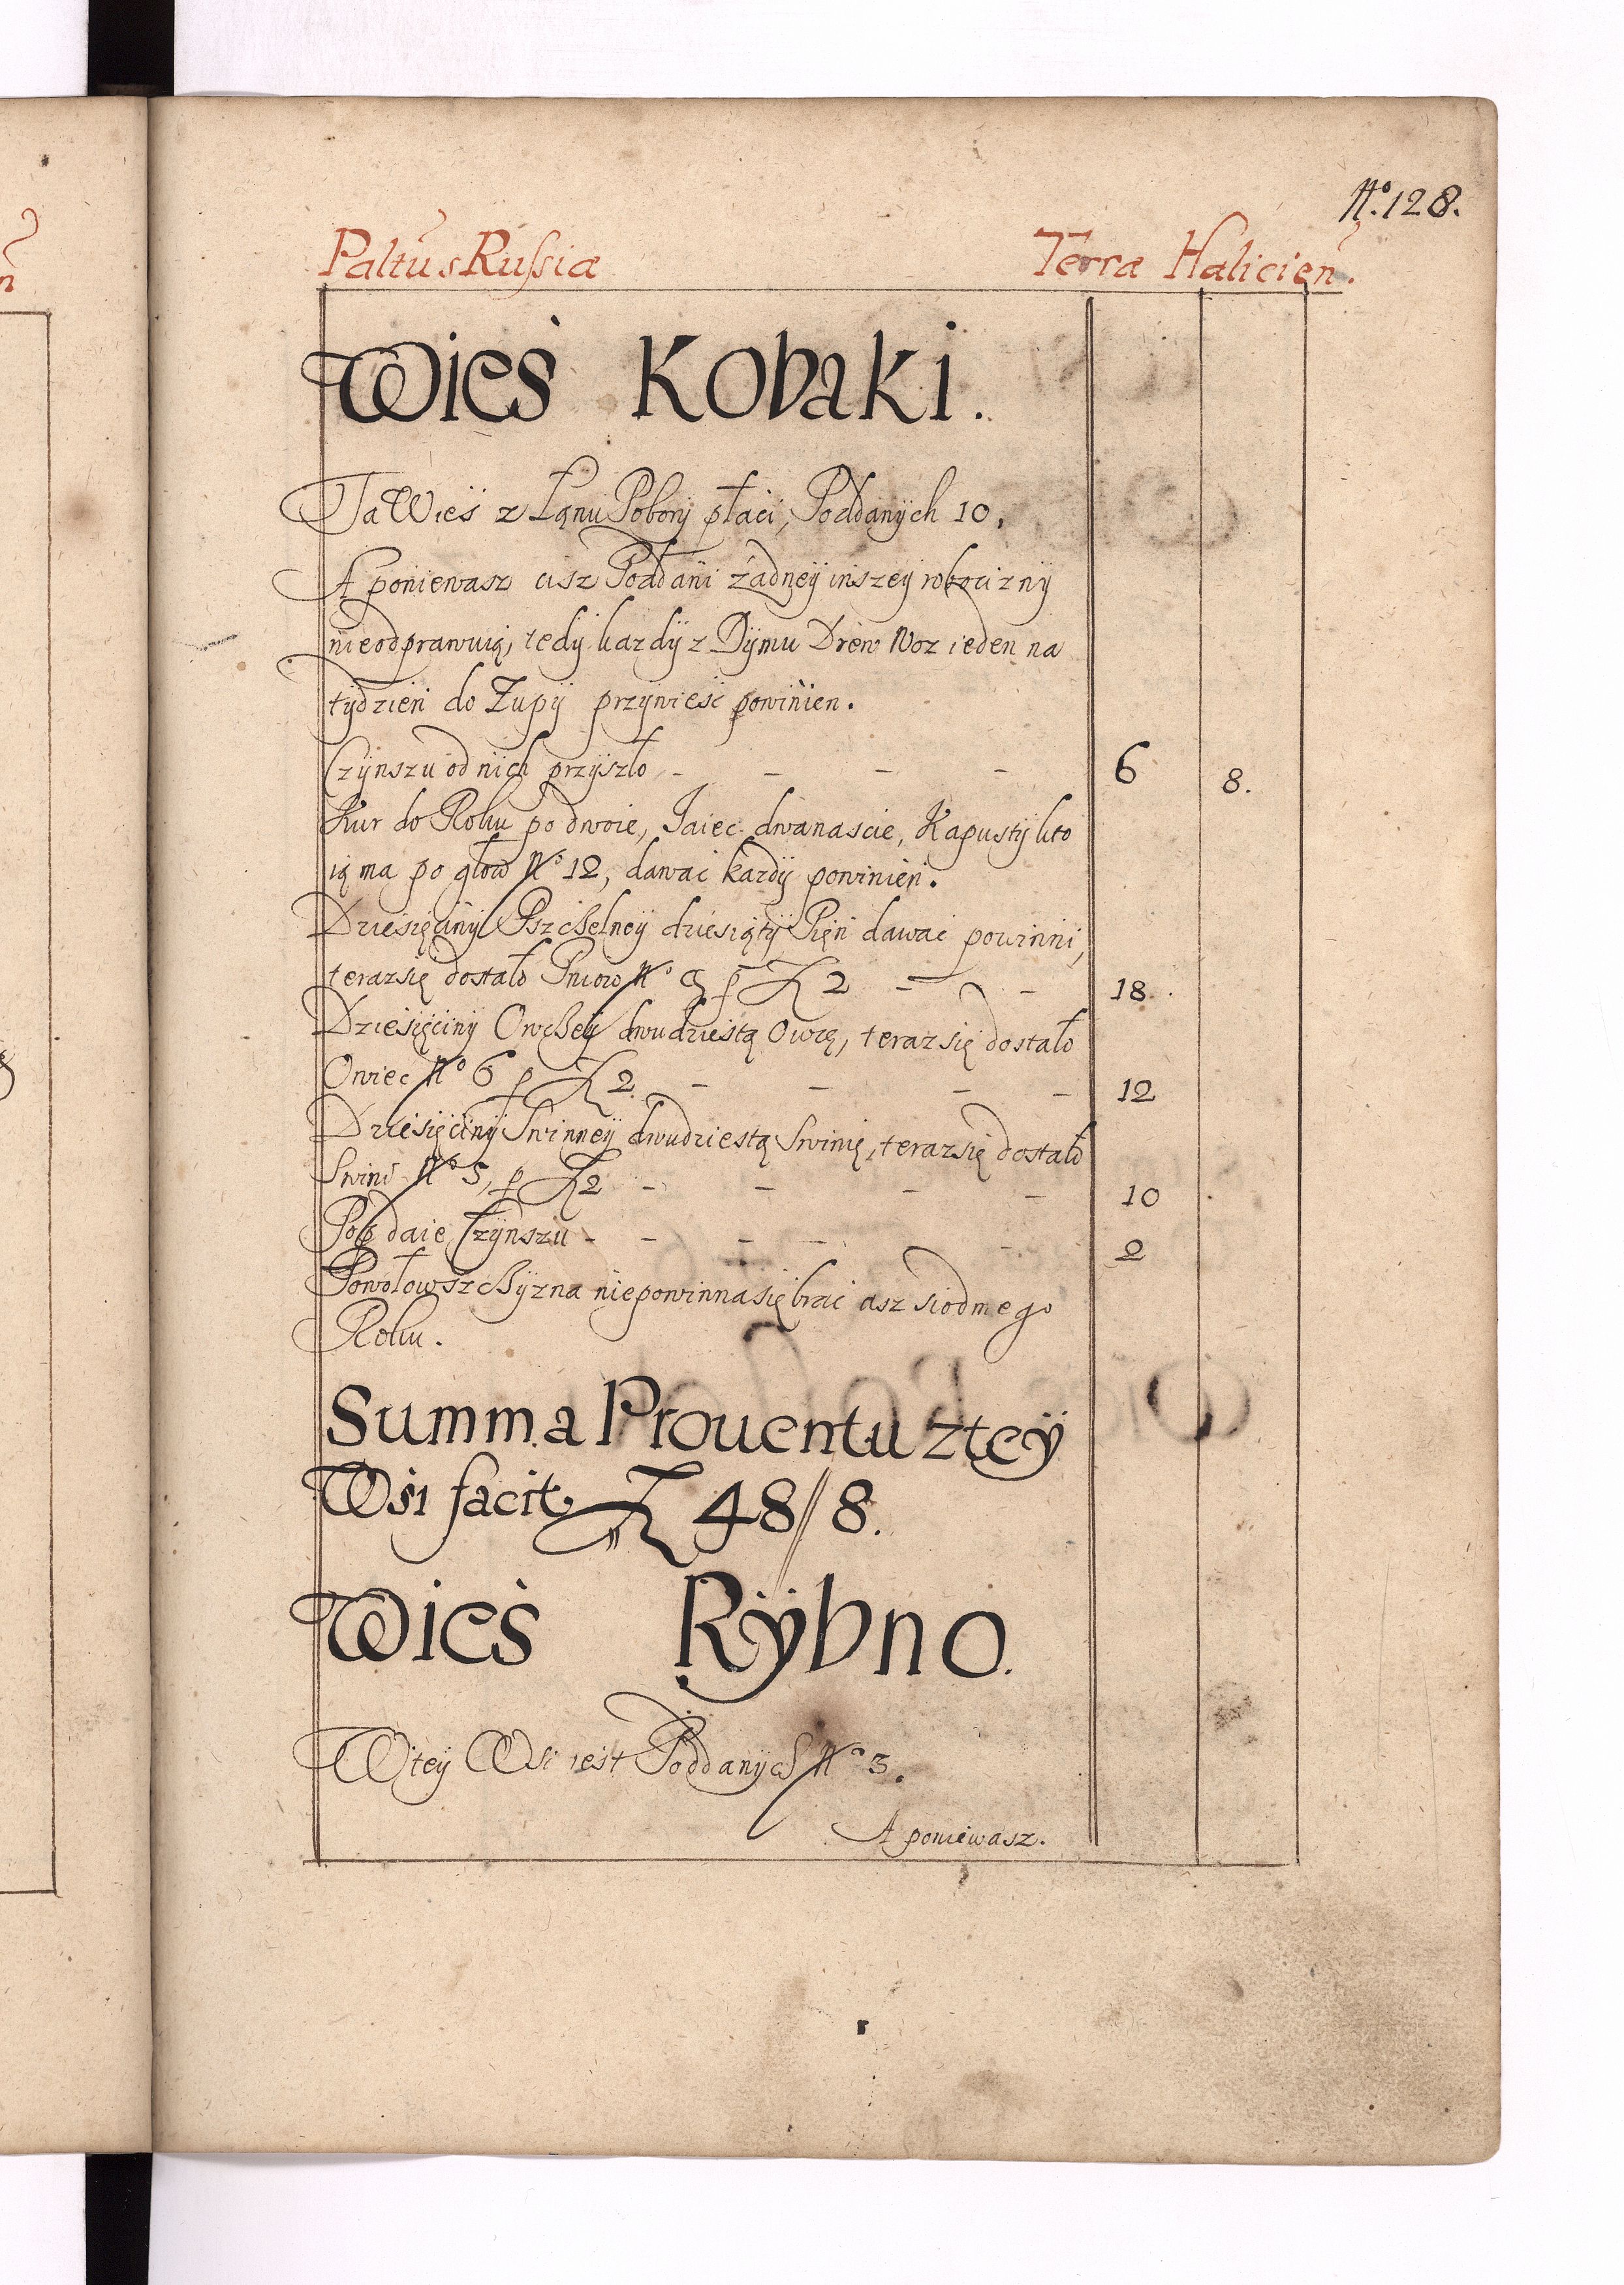 No. 128.
Paltus Russiæ Terra Halicien.
Wieś Kobaki.
Ta Wieś z Łanu Pobory płaci, Poddanÿch 10.
A poniewasz cisz Poddani żadneÿ inszeÿ robociznÿ
nieodprawuią, tedÿ każdÿ z Dÿmu Drew Woz ieden na
tÿdzień do Żupÿ przÿwieść powinien.
Czÿnszu od nich przyszło - - - - 6 8.
Kur do Roku po dwoie, Iaiec dwanascie, Kapustÿ kto
ią ma po głow No 12, dawać kazdÿ powinień.
Dziesięcinÿ Pszczelneÿ dziesiątÿ Pień dawać powinni,
teraz się dostało Pniow No 9 p zł 2 - - 18.
Dziesięcinÿ Owczeÿ dwudziestą Owcę, teraz się dostało
Owiec No 6 p zł 2. - - - - 12
Dziesięcinÿ Swinneÿ dwudziestą Swinię, teraz się dostało
Swini No 5, p zł 2 - - - - 10
Pop daie Czÿnszu - - - - - 2
Powołowszczÿzna niepowinna się brać asz siodmego
Roku.
Summa Prouentu z teÿ
Wsi facit zł 48//8.
Wieś Rÿbno.
W teÿ Wsi iest Poddanÿch No 3.
A poniewasz.